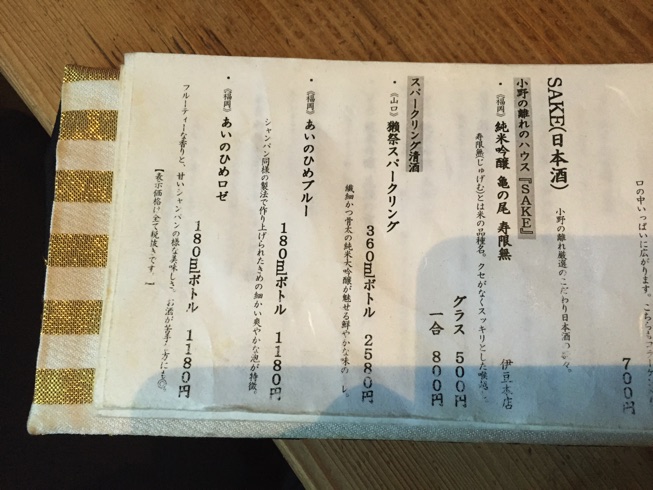 口の中いっぱいに広がります。
700円
SAKE(日本酒)
小野の離れ厳選のこだわり日本酒の
小野の離れのハウス『SAKE』
・《福岡》純米吟醸 亀の尾 寿限無 伊豆本店
寿限無(じゅげむ)とは米の品種名。クセがなくスッキリとした喉越
グラス 500円
一合 800円
スパークリング清酒
・《山口》獺祭スパークリング
360mlボトル 2580円
繊細かつ骨太の純米大吟醸が魅せる鮮やかな味の
・《福岡》あいのひめブルー
180mlボトル 1180円
シャンパン同様の製法で作り上げられたきめの細かい爽やかな泡が特徴。
・《福岡》あいのひめロゼ
180mlボトル 1180円
フルーティーな香りと、甘いシャンパンの様な美味しさ。お酒が苦手な方にも
【表示価格は全て税抜きです。】